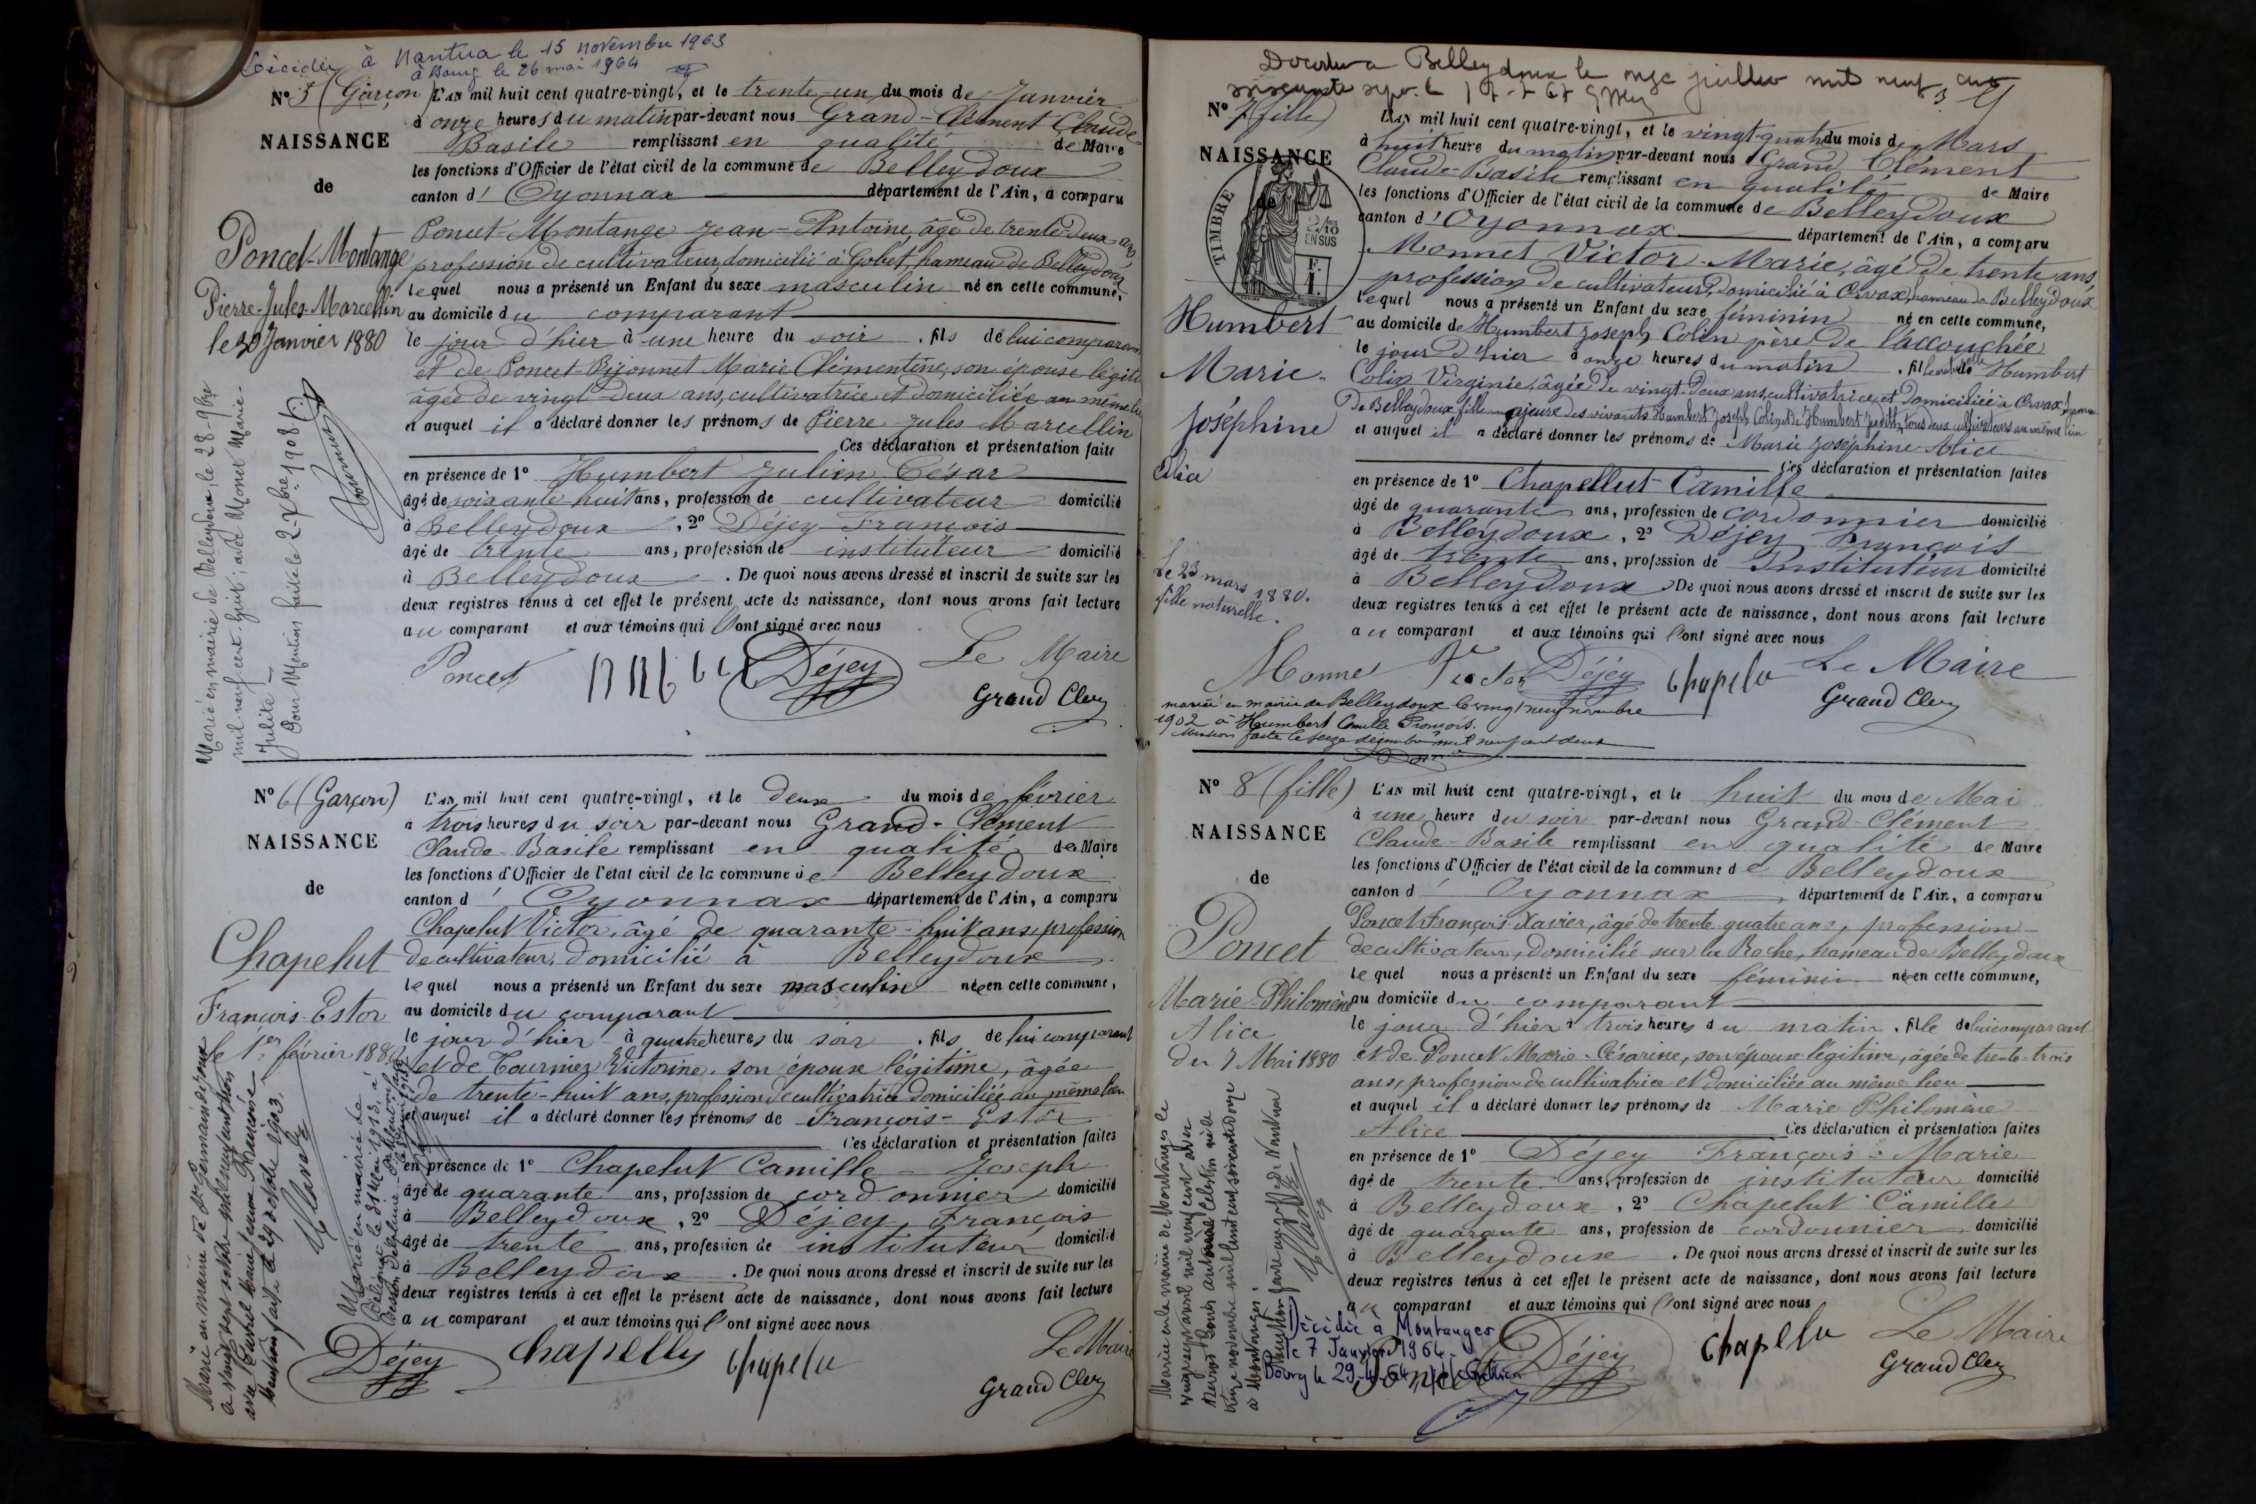 Décidée à Nantua le 15 novembre 1963
à Bourg le 26 mai 1964
N° 5 (Garçon)
NAISSANCE
de
Poncet-Montange
Pierre-Jules-Marcellin
le 30 Janvier 1880
Marié en mairie de Belleydoux, le 28-9bre
mil neuf cent huit, avec Monet Marie-
Julite
Pour Mention faite le 2-Xbre 1908
L'AN mil huit cent quatre-vingt, et le trente-un du mois de Janvier
à onze heures du matin par-devant nous Grand-Clément Claude
Basile remplissant en qualité de Maire
les fonctions d'Officier de l'état civil de la commune de Belleydoux
canton d'Oyonnax département de l'Ain, a comparu
Poncet-Montange Jean-Antoine, âgé de trente-deux ans,
profession de cultivateur, domicilié à Gobet, hameau de Belleydoux
lequel nous a présenté un Enfant du sexe masculin né en cette commune,
au domicile du comparant
le jour d'hier à une heure du soir . fils de lui comparant
et de Poncet-Bijonnet Marie Clémentine, son épouse légitime
âgée de vingt-deux ans, cultivatrice et domiciliée au même lieu
et auquel il a déclaré donner les prénoms de Pierre Jules Marcellin
Ces déclaration et présentation faite
en présence de 1° Humbert Julien César
âgé de soixante huit ans, profession de cultivateur domicilié
à Belleydoux , 2° Déjey François
âgé de trente ans, profession de instituteur domicilié
à Belleydoux . De quoi nous avons dressé et inscrit de suite sur les
deux registres tenus à cet effet le présent acte de naissance, dont nous avons fait lecture
au comparant et aux témoins qui l'ont signé avec nous
Poncet Déjey Le Maire
Grand Clém
N° 6 (Garçon)
NAISSANCE
de
Chapelut
François-Estor
le 1er février 1880
Marié en mairie de St Germain de Joux
le vingt sept octobre mil neuf cent trois
avec
Mention faite le 29 octobre 1903
Marié en mairie de
Bellegarde le 31 Mai 1913, à
L'AN mil huit cent quatre-vingt, et le deux du mois de février
à trois heures du soir par-devant nous Grand-Clément
Claude-Basile remplissant en qualité de Maire
les fonctions d'Officier de l'état civil de la commune de Belleydoux
canton d'Oyonnax département de l'Ain, a comparu
Chapelut Victor, âgé de quarante-huit ans, profession
de cultivateur, domicilié à Belleydoux
lequel nous a présenté un Enfant du sexe masculin né en cette commune,
au domicile du comparant
le jour d'hier à quatre heures du soir . fils de lui comparant
et de Tournier Victorine, son épouse légitime, âgée
de trente-huit ans, profession de cultivatrice domiciliée au même lieu
et auquel il a déclaré donner les prénoms de François-Estor
Ces déclaration et présentation faites
en présence de 1° Chapelut Camille-Joseph
âgé de quarante ans, profession de cordonnier domicilié
à Belleydoux , 2° Déjey, François
âgé de trente ans, profession de instituteur domicilié
à Belleydoux . De quoi nous avons dressé et inscrit de suite sur les
deux registres tenus à cet effet le présent acte de naissance, dont nous avons fait lecture
au comparant et aux témoins qui l'ont signé avec nous
Déjey Chapelu Le Maire
Grand Clém
Belleydoux le onze juillet mil neuf cent
cinquante sept
N° 7 (fille)
NAISSANCE
de
TIMBRE
EN SUS
Humbert
Marie-
Joséphine
Alice
Le 23 mars 1880.
fille naturelle.
L'AN mil huit cent quatre-vingt, et le vingt-quatre du mois de Mars
à huit heure du matin par-devant nous Grand Clément
Claude-Basile remplissant en qualité de Maire
les fonctions d'Officier de l'état civil de la commune de Belleydoux
canton d'Oyonnax département de l'Ain, a comparu
Monnet Victor-Marie, âgé de trente ans,
profession de cultivateur, domicilié à Orvaz, hameau de Belleydoux
lequel nous a présenté un Enfant du sexe féminin né en cette commune,
au domicile de Humbert Joseph Colin père de l'accouchée
le jour d'hier à onze heures du matin . fille de Humbert
Colin Virginie, âgée de vingt-deux ans, cultivatrice, et domiciliée à Orvaz, hameau
de Belleydoux, fille majeure des vivants Humbert Joseph Colin et de Humbert Judith, tous deux cultivateurs au même lieu
et auquel il a déclaré donner les prénoms de Marie Joséphine Alice
Ces déclaration et présentation faites
en présence de 1° Chapellut Camille
âgé de quarante ans, profession de cordonnier domicilié
à Belleydoux , 2° Déjey François
âgé de trente ans, profession de Instituteur domicilié
à Belleydoux . De quoi nous avons dressé et inscrit de suite sur les
deux registres tenus à cet effet le présent acte de naissance, dont nous avons fait lecture
au comparant et aux témoins qui l'ont signé avec nous
Monnet Victor Déjey Chapelu Le Maire
Grand Clém
mariée en mairie de Belleydoux le vingt neuf novembre
1902 à Humbert Camille François.
Mention faite le seize décembre mil neuf cent deux
N° 8 (fille)
NAISSANCE
de
Poncet
Marie-Philomène
Alice
du 7 Mai 1880
Mariée en la mairie de Montanges le
à Montanges.
Mention faite au greffe de Nantua
Décédée à Montanges
le 7 Janvier 1964
Bourg le 29-4-64
L'AN mil huit cent quatre-vingt, et le huit du mois de Mai
à une heure du soir par-devant nous Grand-Clément
Claude-Basile remplissant en qualité de Maire
les fonctions d'Officier de l'état civil de la commune de Belleydoux
canton d'Oyonnax département de l'Ain, a comparu
Poncet François Xavier, âgé de trente quatre ans, profession
de cultivateur, domicilié sur la Roche, hameau de Belleydoux
lequel nous a présenté un Enfant du sexe féminin né en cette commune,
au domicile du comparant
le jour d'hier à trois heures du matin . fille de lui comparant
et de Poncet Marie-Césarine, son épouse légitime, âgée de trente-trois
ans, profession de cultivatrice et domiciliée au même lieu
et auquel il a déclaré donner les prénoms de Marie Philomène
Alice Ces déclaration et présentation faites
en présence de 1° Déjey François-Marie
âgé de trente ans, profession de instituteur domicilié
à Belleydoux , 2° Chapelut Camille
âgé de quarante ans, profession de cordonnier domicilié
à Belleydoux . De quoi nous avons dressé et inscrit de suite sur les
deux registres tenus à cet effet le présent acte de naissance, dont nous avons fait lecture
au comparant et aux témoins qui l'ont signé avec nous
Poncet Déjey Chapelu Le Maire
Grand Clém